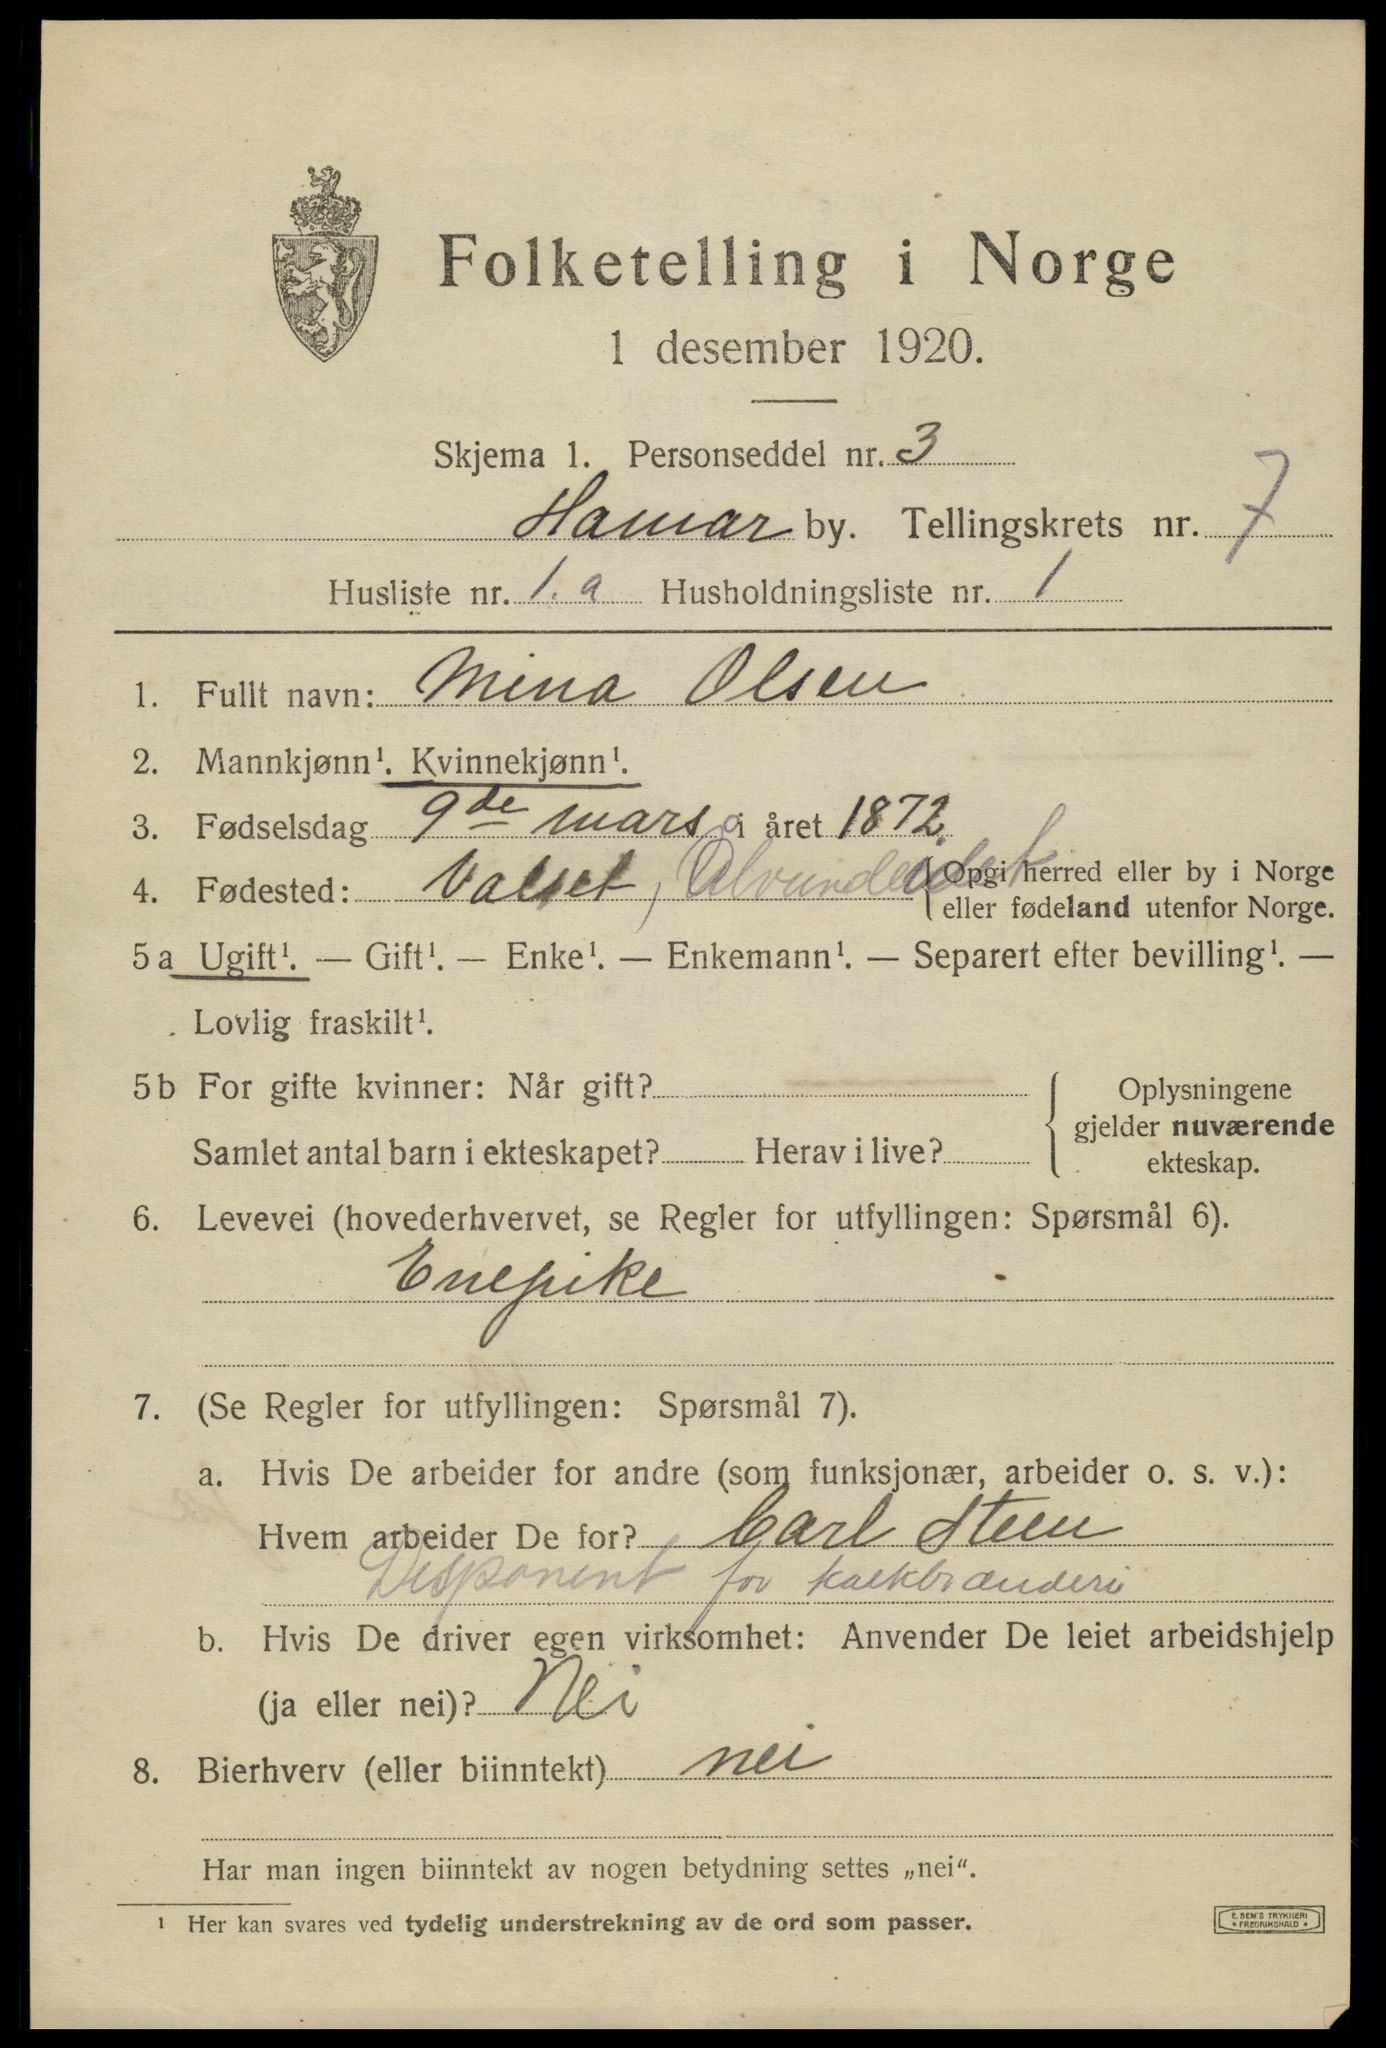 Folketelling i Norge
1 desember 1920.
Skjema 1. Personseddel nr. 3
Hamar by. Tellingskrets nr. 7
Husliste nr. 1.a Husholdningsliste nr. 1
1. Fullt navn: Mina Olsen
2. Mannkjønn¹. Kvinnekjønn¹.
3. Fødselsdag 9de mars i året 1872
4. Fødested: Valset, {Opgi herred eller by i Norge
eller fødeland utenfor Norge.
5a Ugift¹. — Gift¹. — Enke¹. — Enkemann¹. — Separert efter bevilling¹. —
Lovlig fraskilt¹.
5b For gifte kvinner: Når gift?
Samlet antal barn i ekteskapet? Herav i live?
Oplysningene
gjelder nuværende
ekteskap.
6. Levevei (hovederhvervet, se Regler for utfyllingen: Spørsmål 6).
Enepike
7. (Se Regler for utfyllingen: Spørsmål 7).
a. Hvis De arbeider for andre (som funksjonær, arbeider o. s. v.):
Hvem arbeider De for? Carl Steen
Disponent for kalkbrænderi
b. Hvis De driver egen virksomhet: Anvender De leiet arbeidshjelp
(ja eller nei)? Nei
8. Bierhverv (eller biinntekt) nei
Har man ingen biinntekt av nogen betydning settes „nei“.
¹ Her kan svares ved tydelig understrekning av de ord som passer.
E. SEM'S TRYKKERI
• FREDRIKSHALD •